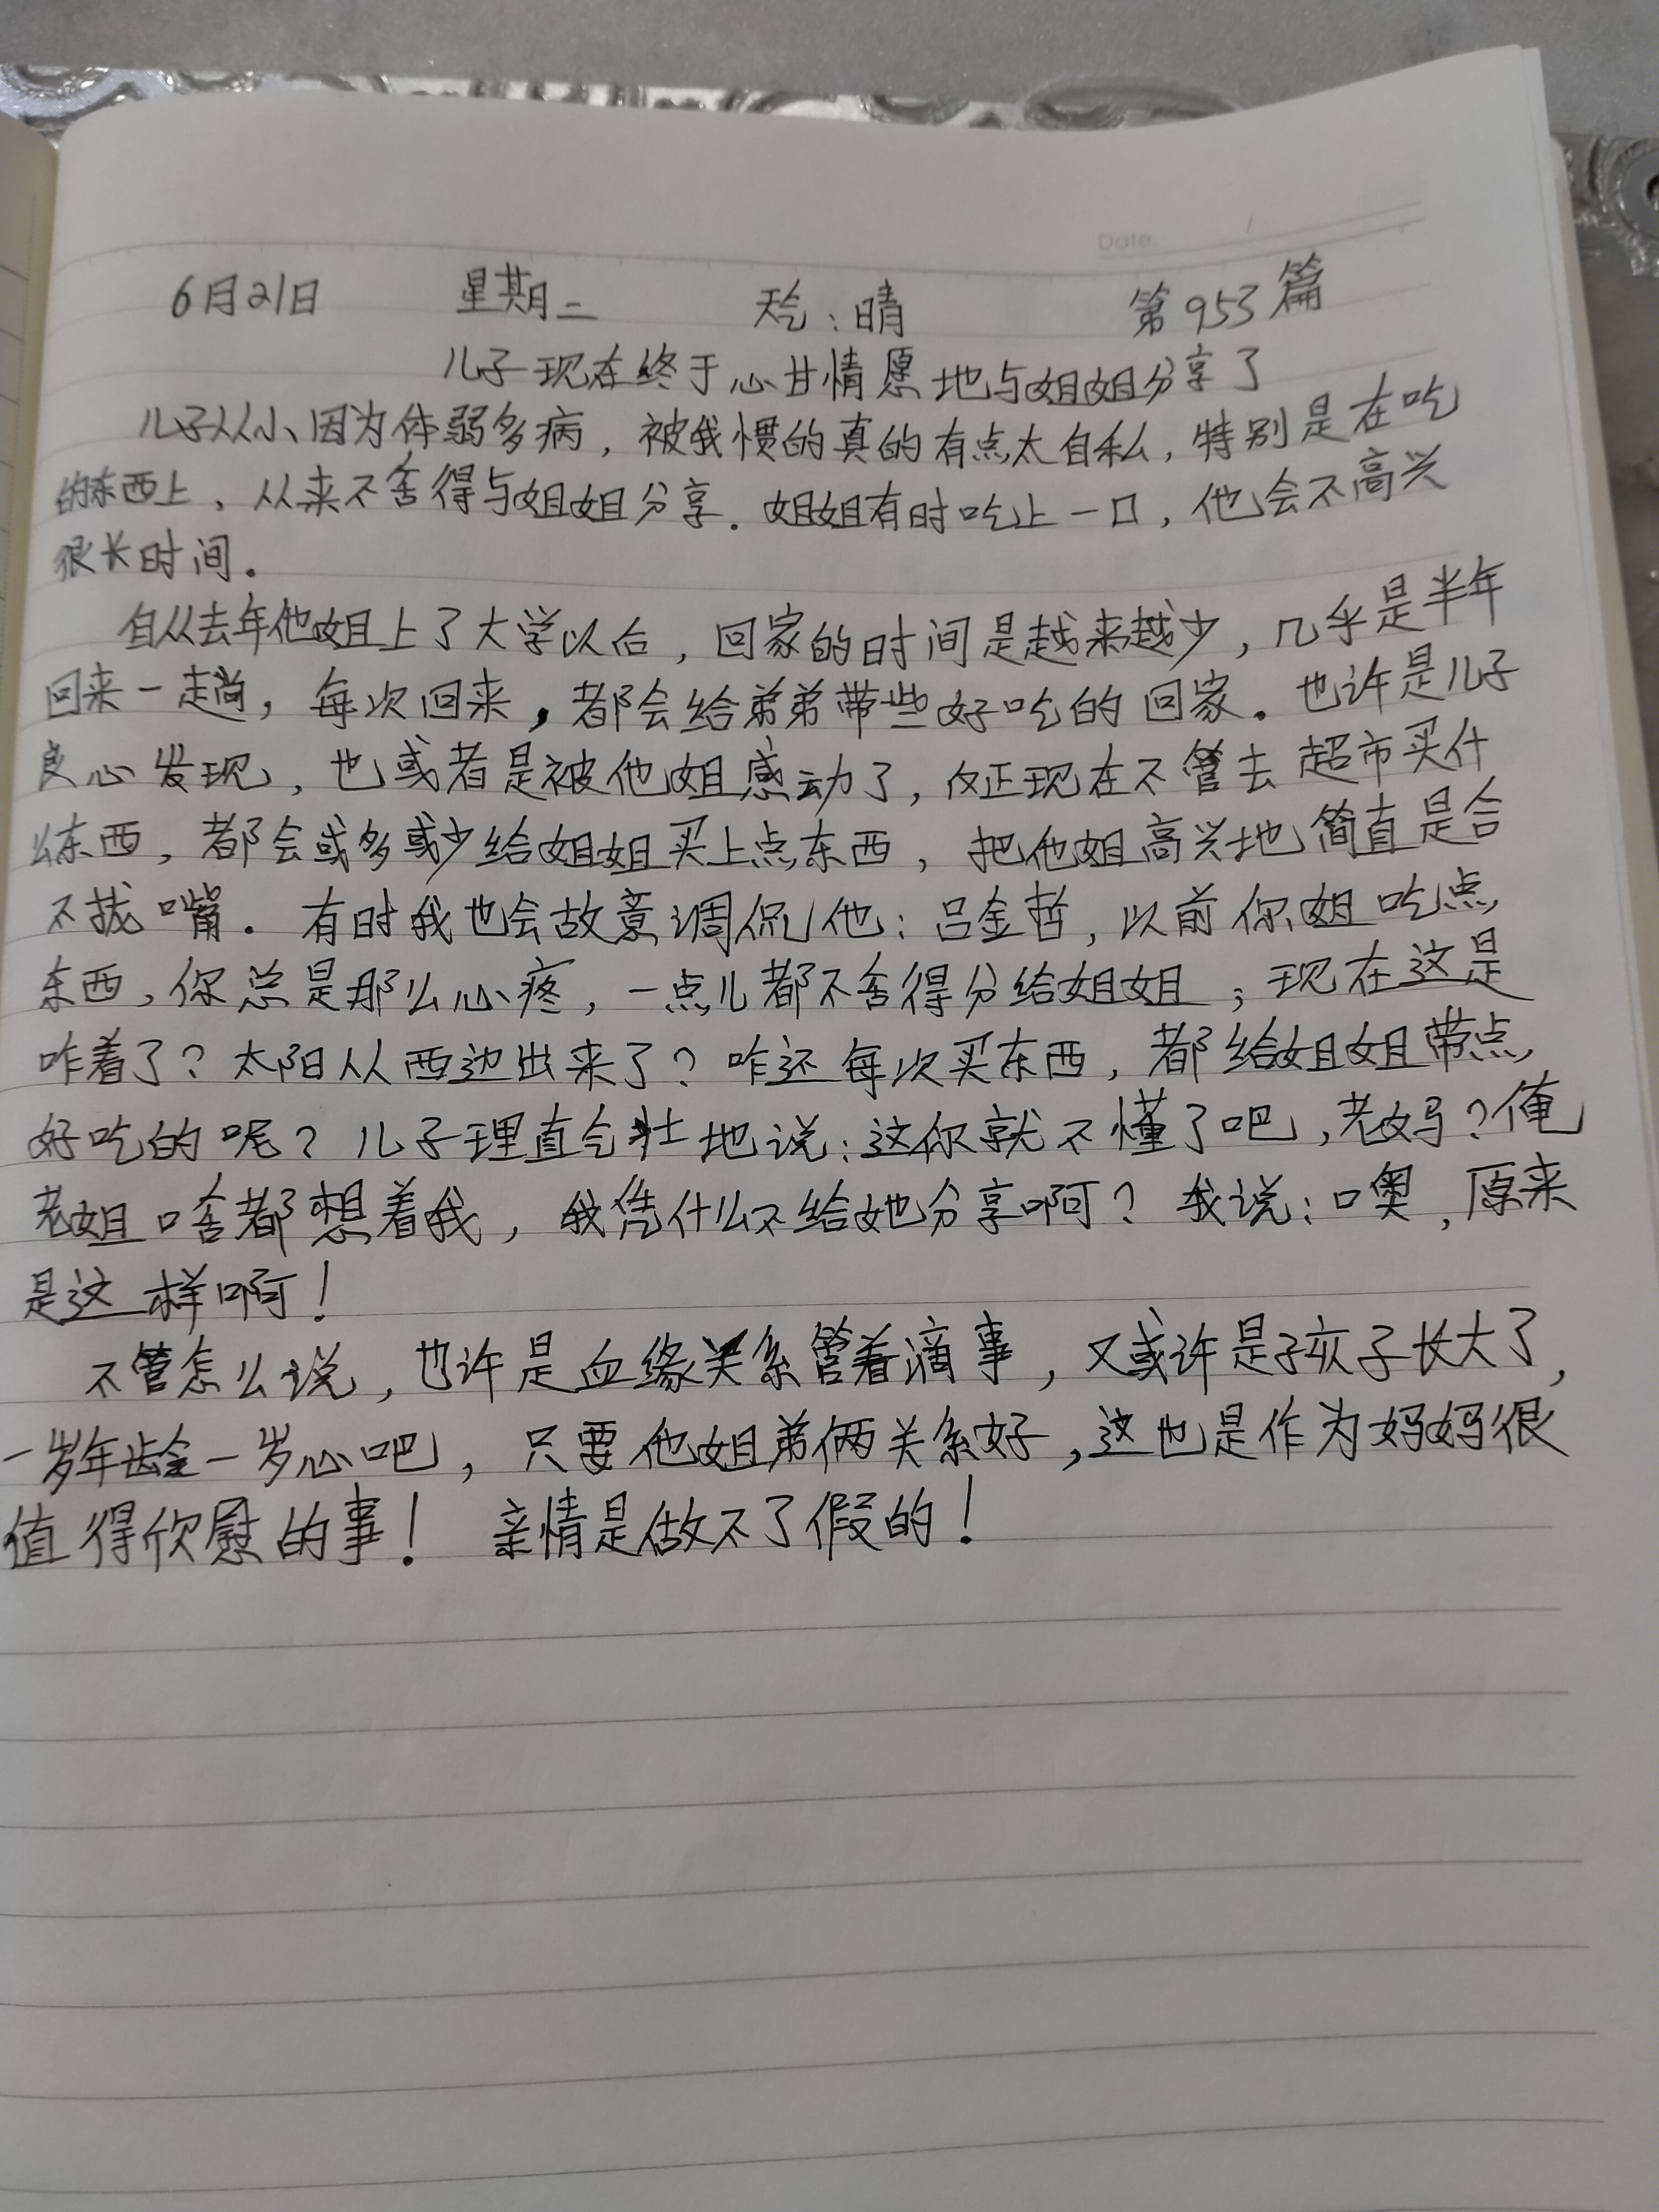 Date /
6月21日 星期二 天气:晴 第953篇
儿子现在终于心甘情愿地与姐姐分享了
儿子从小因为体弱多病,被我惯的真的有点太自私,特别是在吃
的东西上,从来不舍得与姐姐分享.姐姐有时吃上一口,他会不高兴
很长时间。
自从去年他姐上了大学以后,回家的时间是越来越少,几乎是半年
回来一趟,每次回来,都会给弟弟带些好吃的回家。也许是儿子
良心发现,也或者是被他姐感动了,反正现在不管去超市买什
么东西,都会或多或少给姐姐买上点东西,把他姐高兴地简直是合
不拢嘴.有时我也会故意调侃他:吕金哲,以前你姐吃点
东西,你总是那么心疼,一点儿都不舍得分给姐姐;现在这是
咋着了?太阳从西边出来了?咋还每次买东西,都给姐姐带点
好吃的呢?儿子理直气壮地说:这你就不懂了吧,老妈?俺
老姐啥都想着我,我凭什么不给她分享啊?我说:噢,原来
是这样啊!
不管怎么说,也许是血缘关系管着滴事,又或许是孩子长大了,
一岁年龄一岁心吧,只要他姐弟俩关系好,这也是作为妈妈很
值得欣慰的事!亲情是做不了假的!